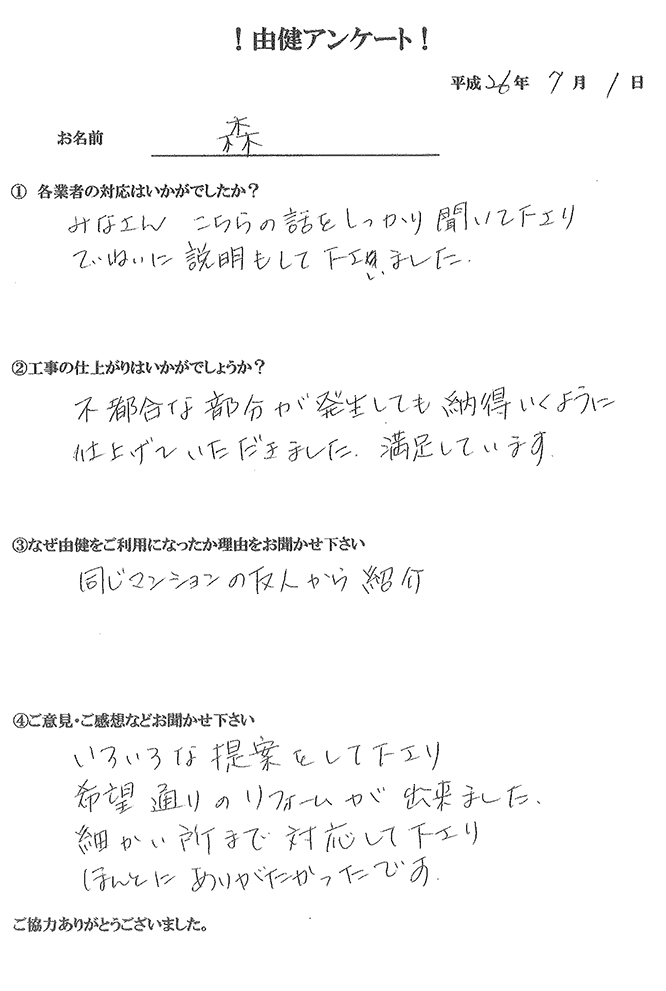 ！由健アンケート！
平成26年 7月 1日
お名前 森
① 各業者の対応はいかがでしたか？
みなさん こちらの話をしっかり聞いて下さり
ていねいに説明もして下さいました.
②工事の仕上がりはいかがでしょうか？
不都合な部分が発生しても納得いくように
仕上げていただきました. 満足しています.
③なぜ由健をご利用になったか理由をお聞かせ下さい
同じマンションの友人から紹介
④ご意見・ご感想などお聞かせ下さい
いろいろな提案をして下さり
希望通りのリフォームが出来ました.
細かい所まで対応して下さり
ほんとにありがたかったです.
ご協力ありがとうございました。